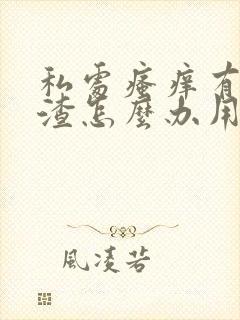 私處瘙癢有
渣怎麼办用
風凌若